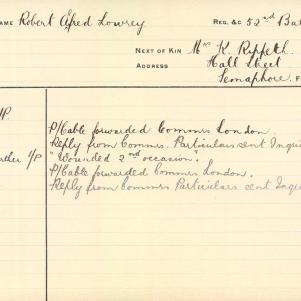 NAME Robert Alfred Lowrey REG. &C 52nd Bat
NEXT OF KIN Mrs K. Rippeth.
ADDRESS Hall Street
Semaphore.
/P.
P/Cable forwarded Commrs London.
Reply from Commrs. Particulars sent Inqui
"Wounded 2nd occasion".
P/Cable forwarded Commrs London.
Reply from Commrs Particulars sent Inqui